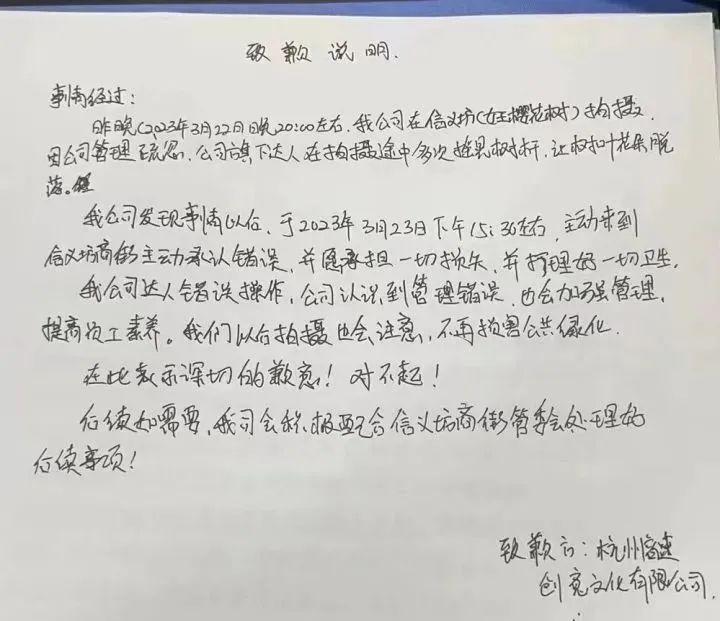 致歉说明.
事情经过:
昨晚(2023年3月22日晚20:00左右,我公司在信义坊(女王樱花树)拍摄.
因公司管理疏忽、公司旗下达人在拍摄途中多次摇晃树杆,让树叶花朵脱
落。
我公司发现事情以后,于2023年3月23日下午15:30左右,主动来到
信义坊商街主动承认错误,并愿承担一切损失,并打理好一切卫生.
我公司达人错误操作,公司认识到管理错误,也会加强管理,
提高员工素养。我们以后拍摄也会注意,不再损害公共绿化.
在此表示深切的歉意!对不起!
后续如需要,我司会积极配合信义坊商街管委会处理好
后续事项!
致歉方:杭州
创意文化有限公司.